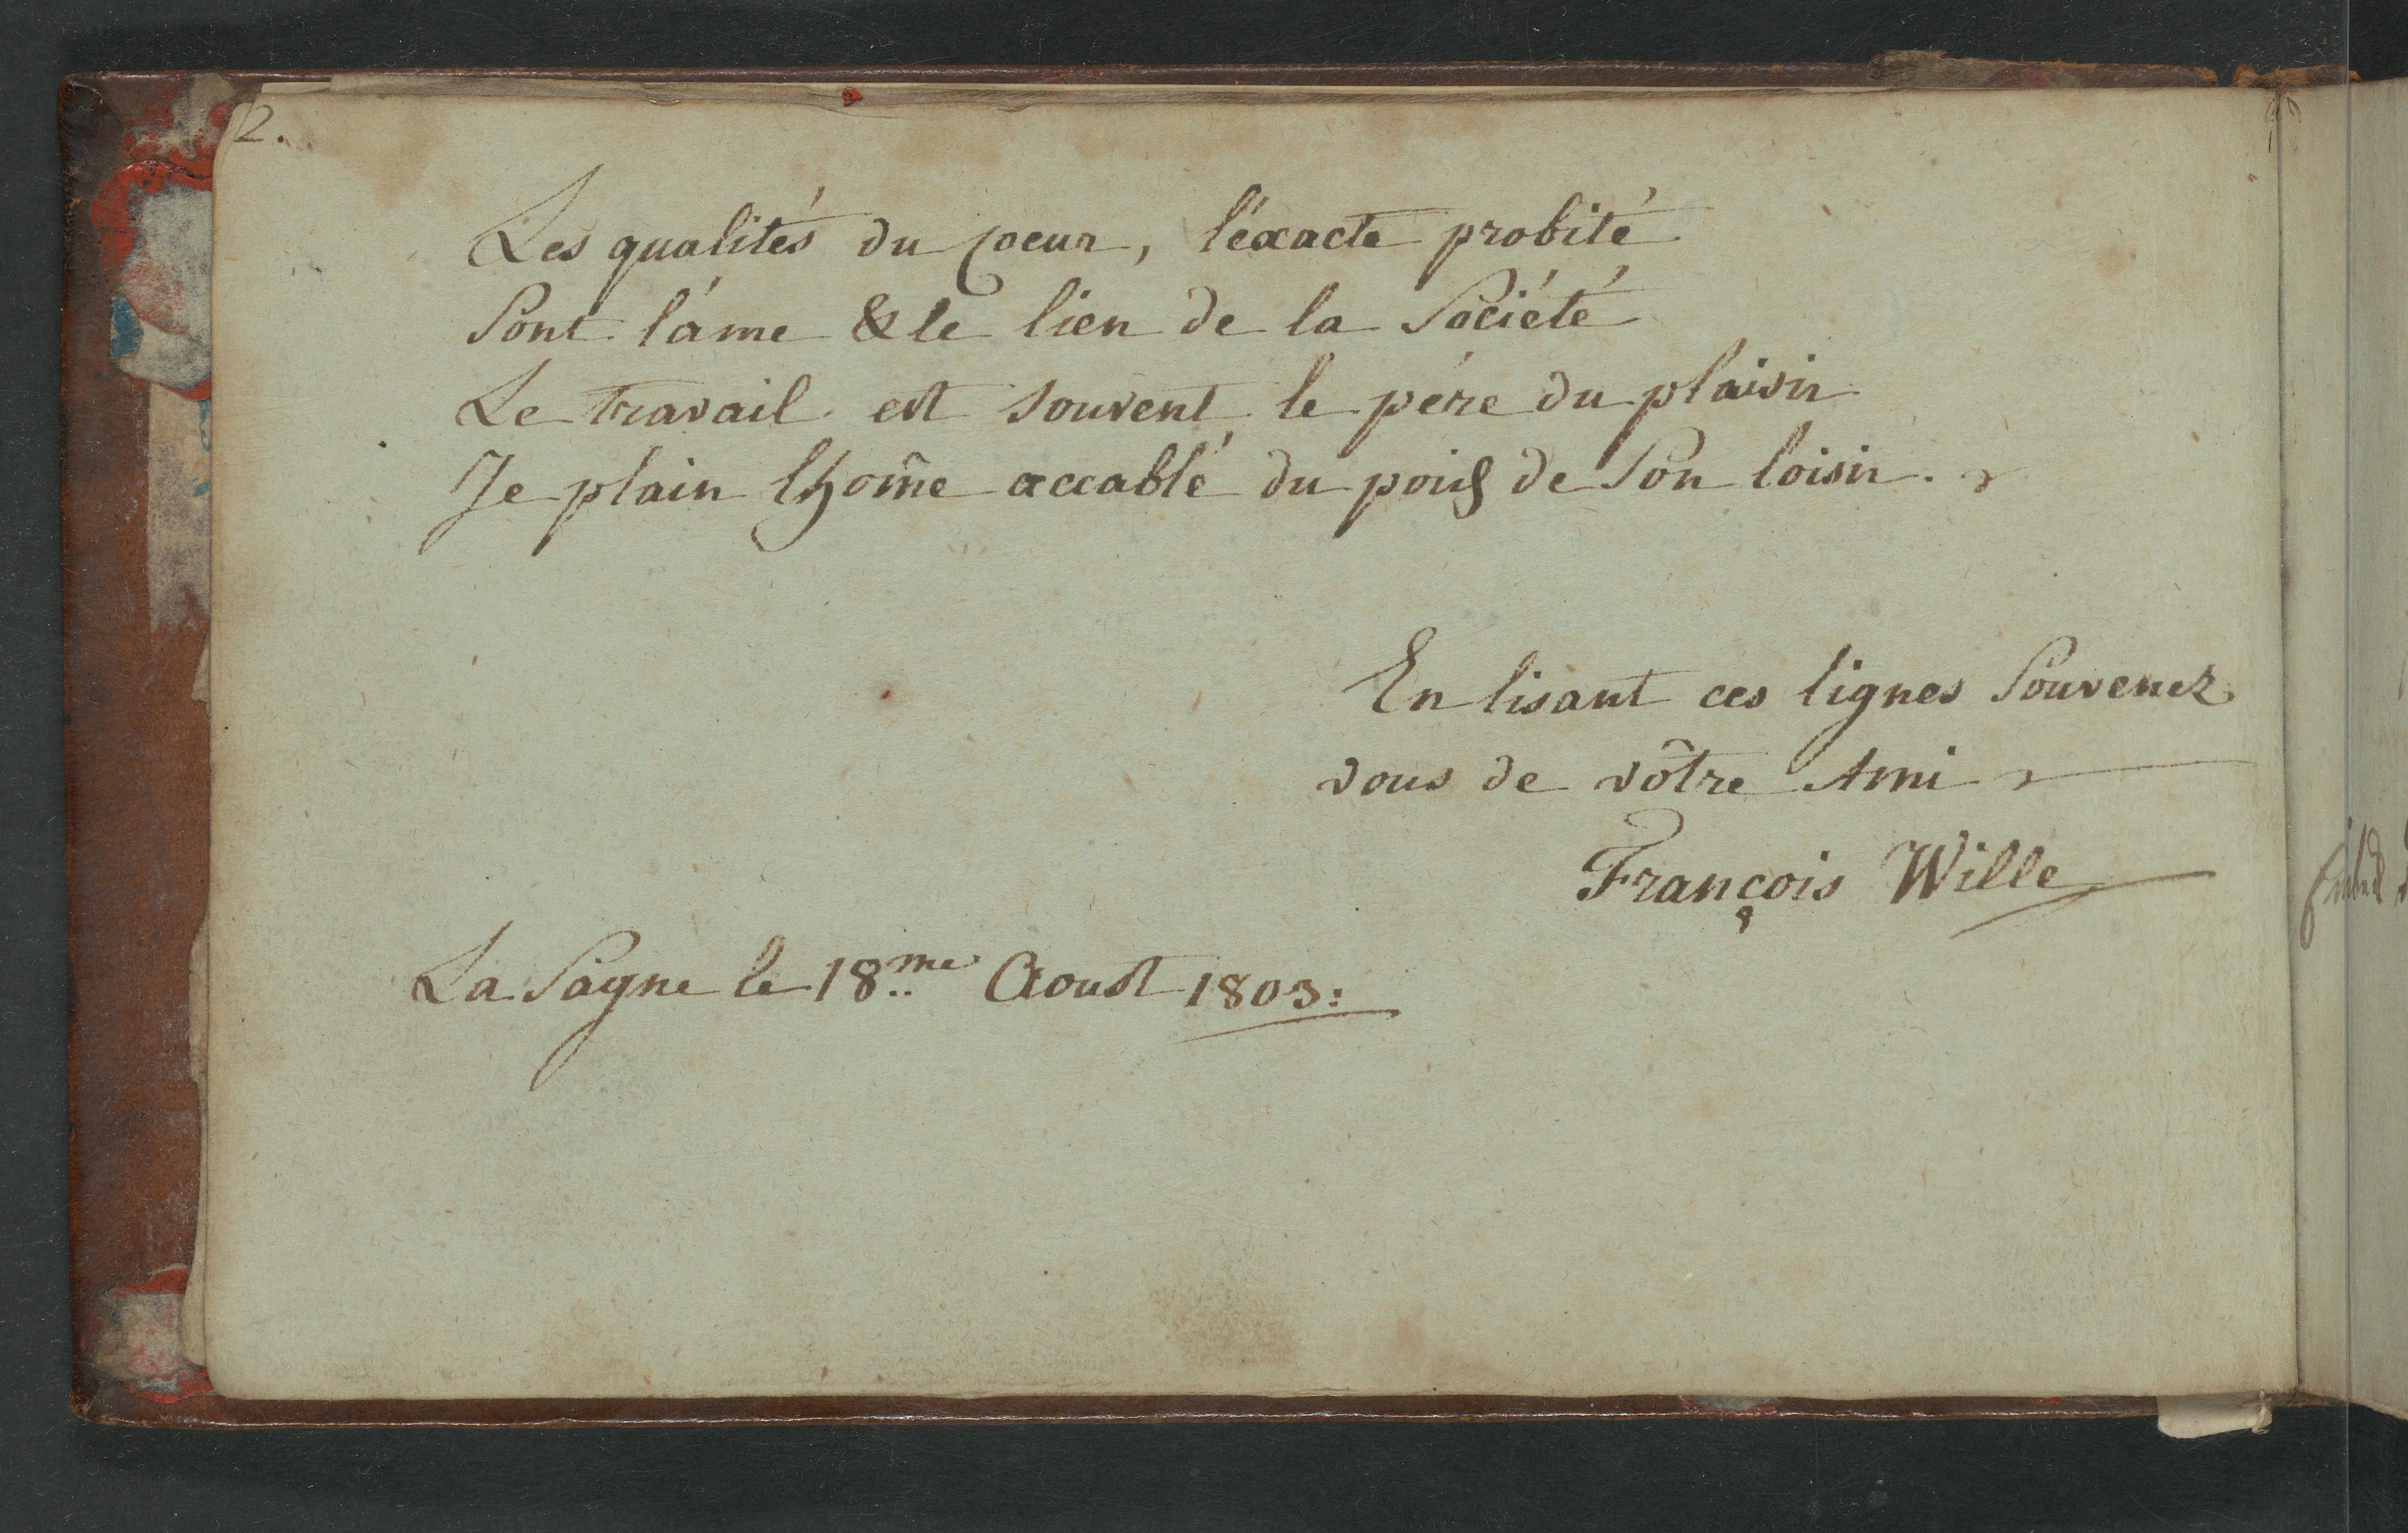 2.
Les qualités du Coeur, l'éxacte probité
Sont l'áme & le lien de la Société
Le travail est souvent le pére du plaisir
Je plain lhom̃e accablé du poids de Son loisir.
En lisant ces lignes Souvenez
vous de vôtre Ami
François Wille
La Sagne le 18.me Aoust 1803: